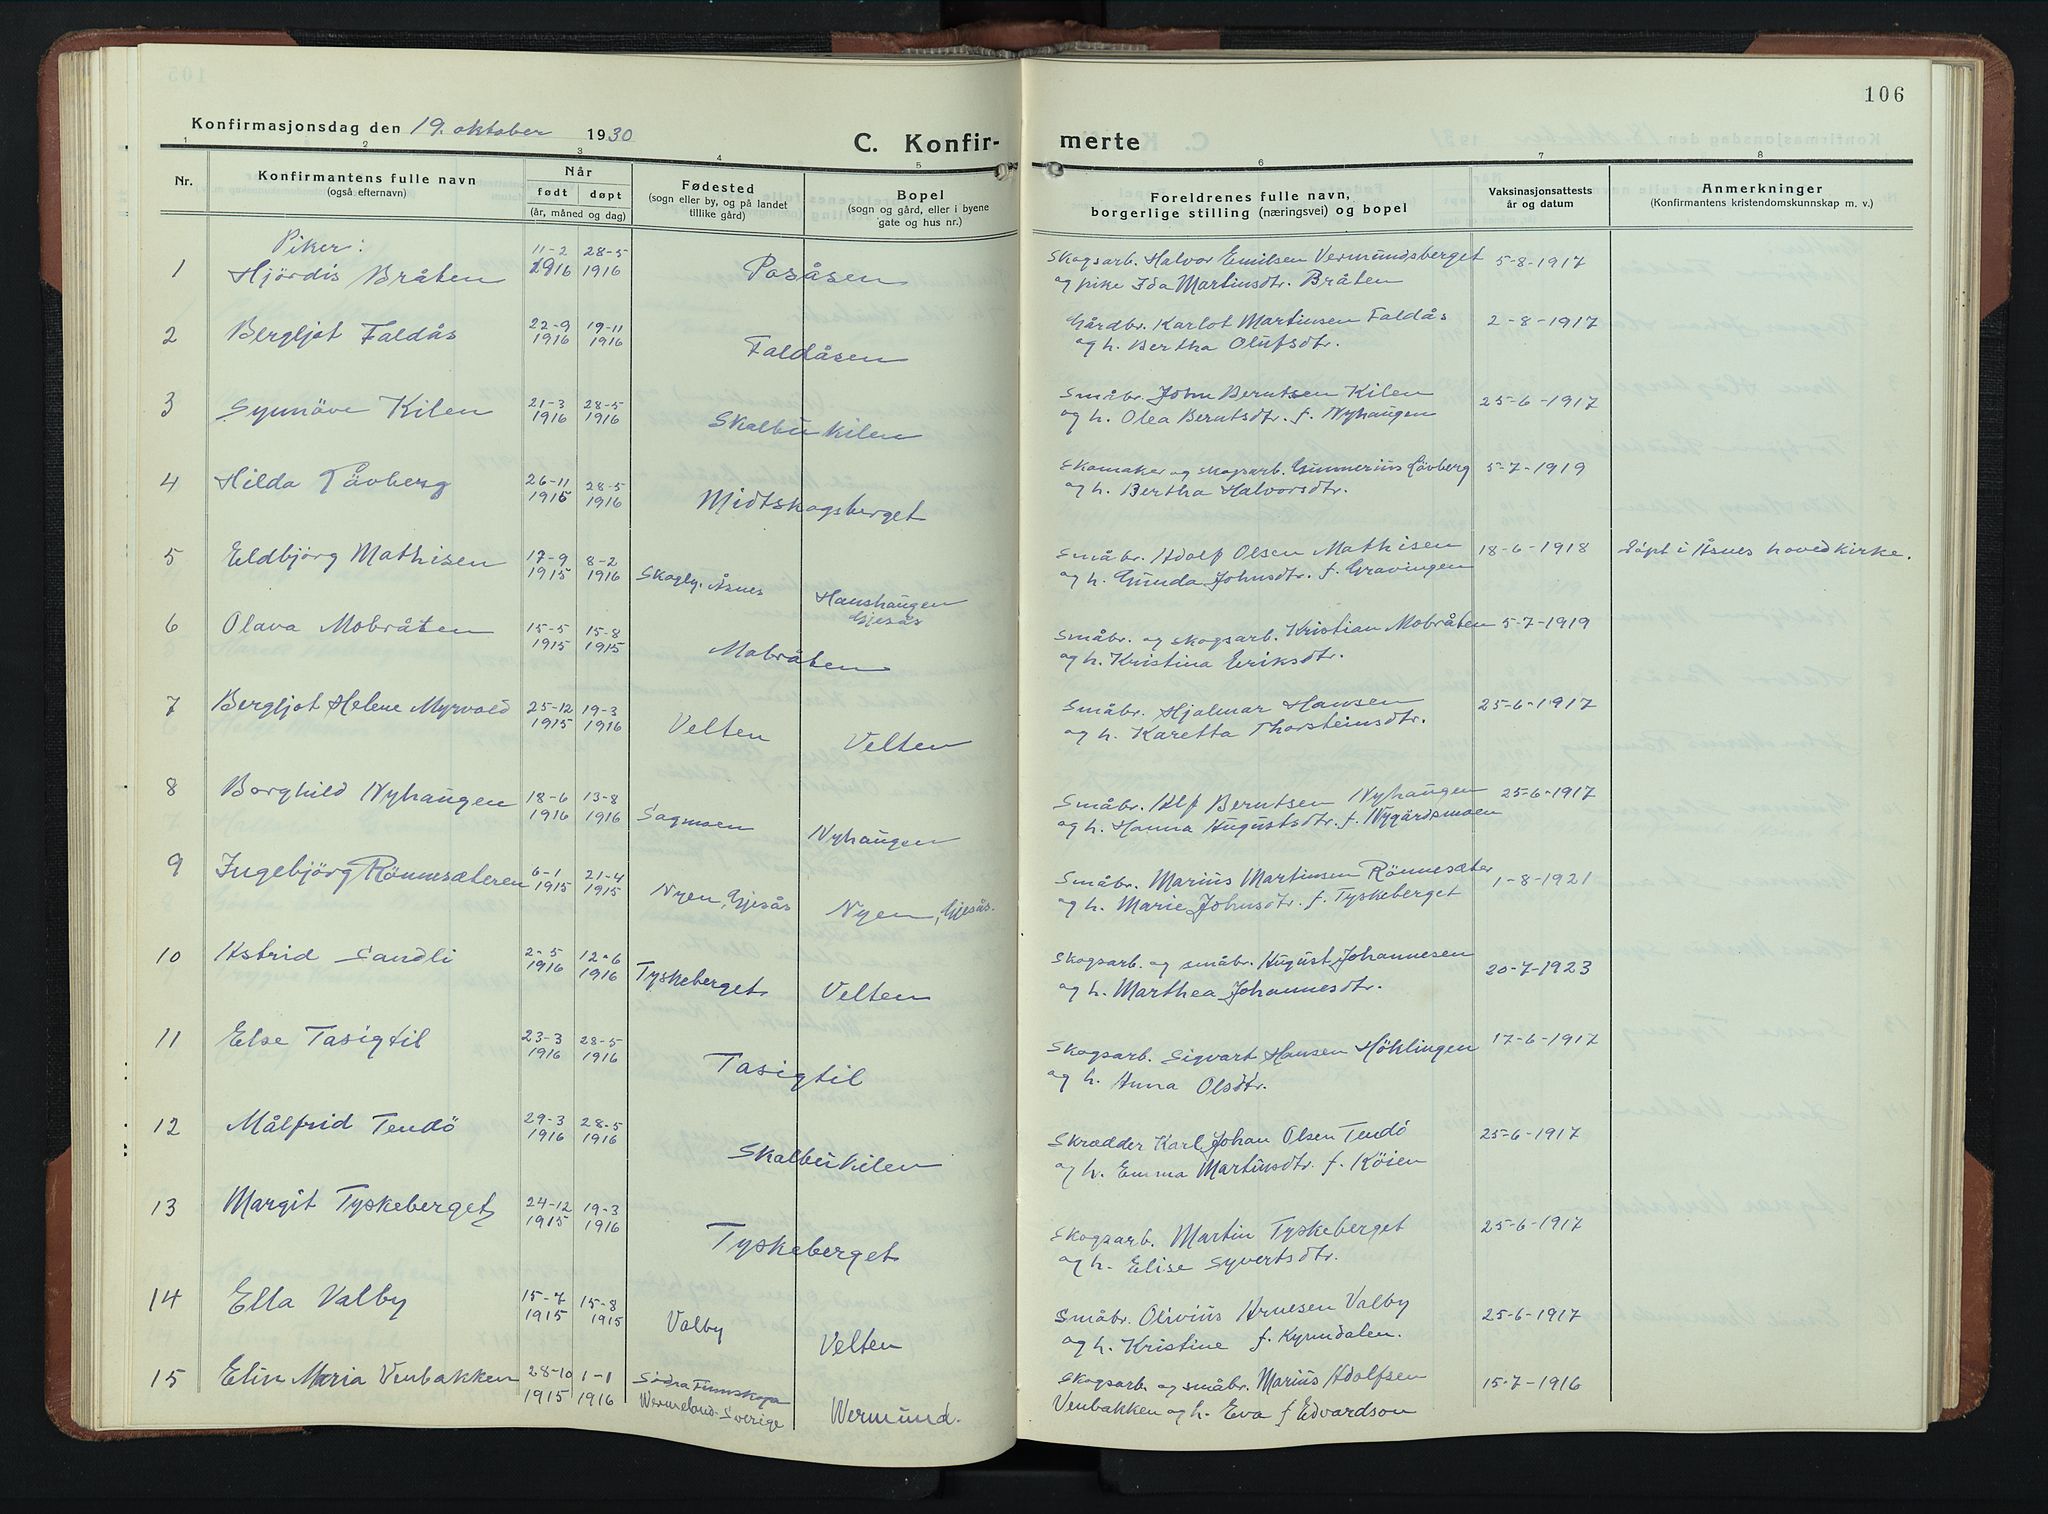 106
Konfirmasjonsdag den 19. oktober 1930
C. Konfir- merte
1 2 3 4 5 6 7 8
Nr. Konfirmantens fulle navn (også efternavn) Når født døpt (år, måned og dag) Fødested (sogn eller by, og på landet tillike gård) Bopel (sogn og gård, eller i byene gate og hus nr.) Foreldrenes fulle navn, borgerlige stilling (næringsvei) og bopel Vaksinasjonsattests år og datum Anmerkninger (Konfirmantens kristendomskunnskap m. v.)
Piker:
1 Hjördis Bråten 11-2 1916 28-5 1916 Posåsen Skogsarb. Halvor Emilsen Vermundsberget 5-8-1917
og pike Ida Martinsdtr. Bråten
2 Bergljot Faldås 22-9 1916 19-11 1916 Faldåsen Gårdbr. Karlot Martinsen Faldås 2-8-1917
og h. Bertha Olufsdtr.
3 Synnöve Kilen 21-3 1916 28-5 1916 Skalbukilen Småbr. John Berntsen Kilen 25-6-1917
og h. Olea Berntsdtr. f. Nyhaugen
4 Hilda Lövberg 26-11 1915 28-5 1916 Midtskogsberget Skomaker og skogsarb. Gunnerius Lövberg 5-7-1919
og h. Bertha Halvorsdtr.
5 Eldbjörg Mathisen 17-9 1915 8-2 1916 Skogly, Åsnes Haushaugen Gjesås Småbr. Adolf Olsen Mathisen 18-6-1918 Döpt i Åsnes hovedkirke.
og h. Gunda Johnsdtr. f. Gravingen
6 Olava Mobråten 15-5 1915 15-8 1915 Mobråten Småbr. og skogsarb. Kristian Mobråten 5-7-1919
og h. Kristina Eriksdtr.
7 Bergljot Helene Myrvold 25-12 1915 19-3 1916 Velten Velten Småbr. Hjalmar Hansen 25-6-1917
og h. Karetta Thorsteinsdtr.
8 Borghild Nyhaugen 18-6 1916 13-8 1916 Sagmoen Nyhaugen Småbr. Alf Berntsen Nyhaugen 25-6-1917
og h. Hanna Augustsdtr. f. Nygårdsmoen
9 Ingebjörg Rönnesæteren 6-1 1915 21-4 1915 Nyen, Gjesås Nyen, Gjesås. Småbr. Marius Martinsen Rönnesæter 1-8-1921
og h. Marie Johnsdtr. f. Tyskeberget
10 Astrid Sandli 2-5 1916 12-6 1916 Tyskeberget Velten Skogsarb. og småbr. August Johannesen 20-7-1923
og h. Marthea Johannesdtr.
11 Else Tasigtil 23-3 1916 28-5 1916 Tasigtil Skogsarb. Sigvart Hansen Höklingen 17-6-1917
og h. Anna Olsdtr.
12 Målfrid Tendö 29-3 1916 28-5 1916 Skalbukilen Skrædder Karl Johan Olsen Tendö 25-6-1917
og h. Emma Martinsdtr. f. Köien
13 Margit Tyskeberget 24-12 1915 19-3 1916 Tyskeberget Skogsarb. Martin Tyskeberget 25-6-1917
og h. Elise Syvertsdtr.
14 Ella Valby 15-7 1915 15-8 1915 Valby Velten Småbr. Olivius Arnesen Valby 25-6-1917
og h. Kristine f. Kynndalen.
15 Elin Maria Venbakken 28-10 1915 1-1 1916 Södra Finnskoga Wermeland-Sverige Wermund. Skogsarb. og småbr. Marius Adolfsen 15-7-1916
Venbakken og h. Eva f Edvardson